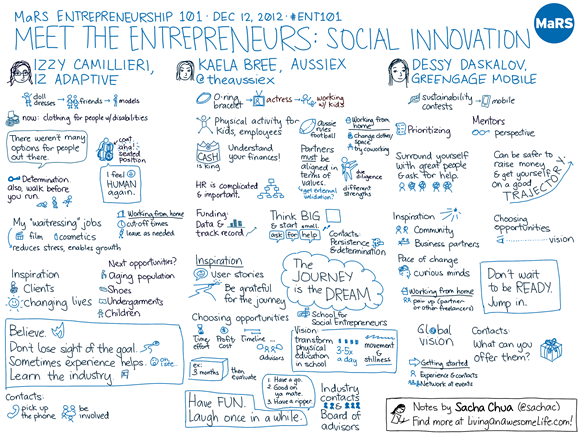 MaRS ENTREPRENEURSHIP 101 · DEC 12, 2012 · #ENT101
MaRS
MEET THE ENTREPRENEURS: SOCIAL INNOVATION
IZZY CAMILLIERI,
IZ ADAPTIVE
doll
dresses
friends
models
now: clothing for people w/disabilities
There weren't many
options for people
out there.
coat
aha!
seated
position
Determination
also, walk before
you run.
I feel
HUMAN
again.
My "waitressing" jobs
film
cosmetics
reduces stress, enables growth
Working from home
cut off times
leave as needed
Inspiration
Clients
Changing lives
Next opportunities?
Aging population
Shoes
Undergarments
Children
Believe.
Don't lose sight of the goal.
Sometimes experience helps.
Learn the industry.
Contacts:
pick up
the phone
be
involved
KAELA BREE, AUSSIEX
@theaussiex
O-ring
bracelet
actress
working
w/ kids
Physical activity for
Kids, employees
Aussie
rules
football
Working from
home?
change clothes/
space
try coworking
CASH
is King
Understand
your finances!
Partners
must be
aligned in
terms of
values.
due
diligence
HR is complicated
& important.
get external
validation?
different
strengths
Funding:
Data &
track record
Think BIG
& start small.
ask for help
Contacts:
Persistence
& determination
Inspiration
User stories
Be grateful
for the journey
The
JOURNEY
is the DREAM
School for
Social Entrepreneurs
Choosing opportunities
Time,
effort
Profit
Cost
Timeline ...
advisors
ex:
3 months
then evaluate
Vision:
transform
physical
education
in school
3-5x
a day
movement
&
stillness
Have FUN.
Laugh once in a while.
1. Have a go.
2. Good on
ya mate.
3. Have a ripper.
Industry
contacts
&
Board of
advisors
DESSY DASKALOV,
GREENGAGE MOBILE
sustainability
contests
mobile
Prioritizing
Mentors
perspective
Surround yourself
with great people
& ask for help.
Can be safer to
raise money
& get yourself
on a good
TRAJECTORY
Inspiration
Community
Business partners
Choosing
opportunities
vision
Pace of change
curious minds
Working from home
pair up (partner
or other freelancers)
Don't wait
to be READY.
Jump in.
Global
VISION
Contacts:
What can you
offer them?
Getting started
Experience & contacts
Network at events
Notes by Sacha Chua (@sachac)
Find more at LivingAnAwesomeLife.com!